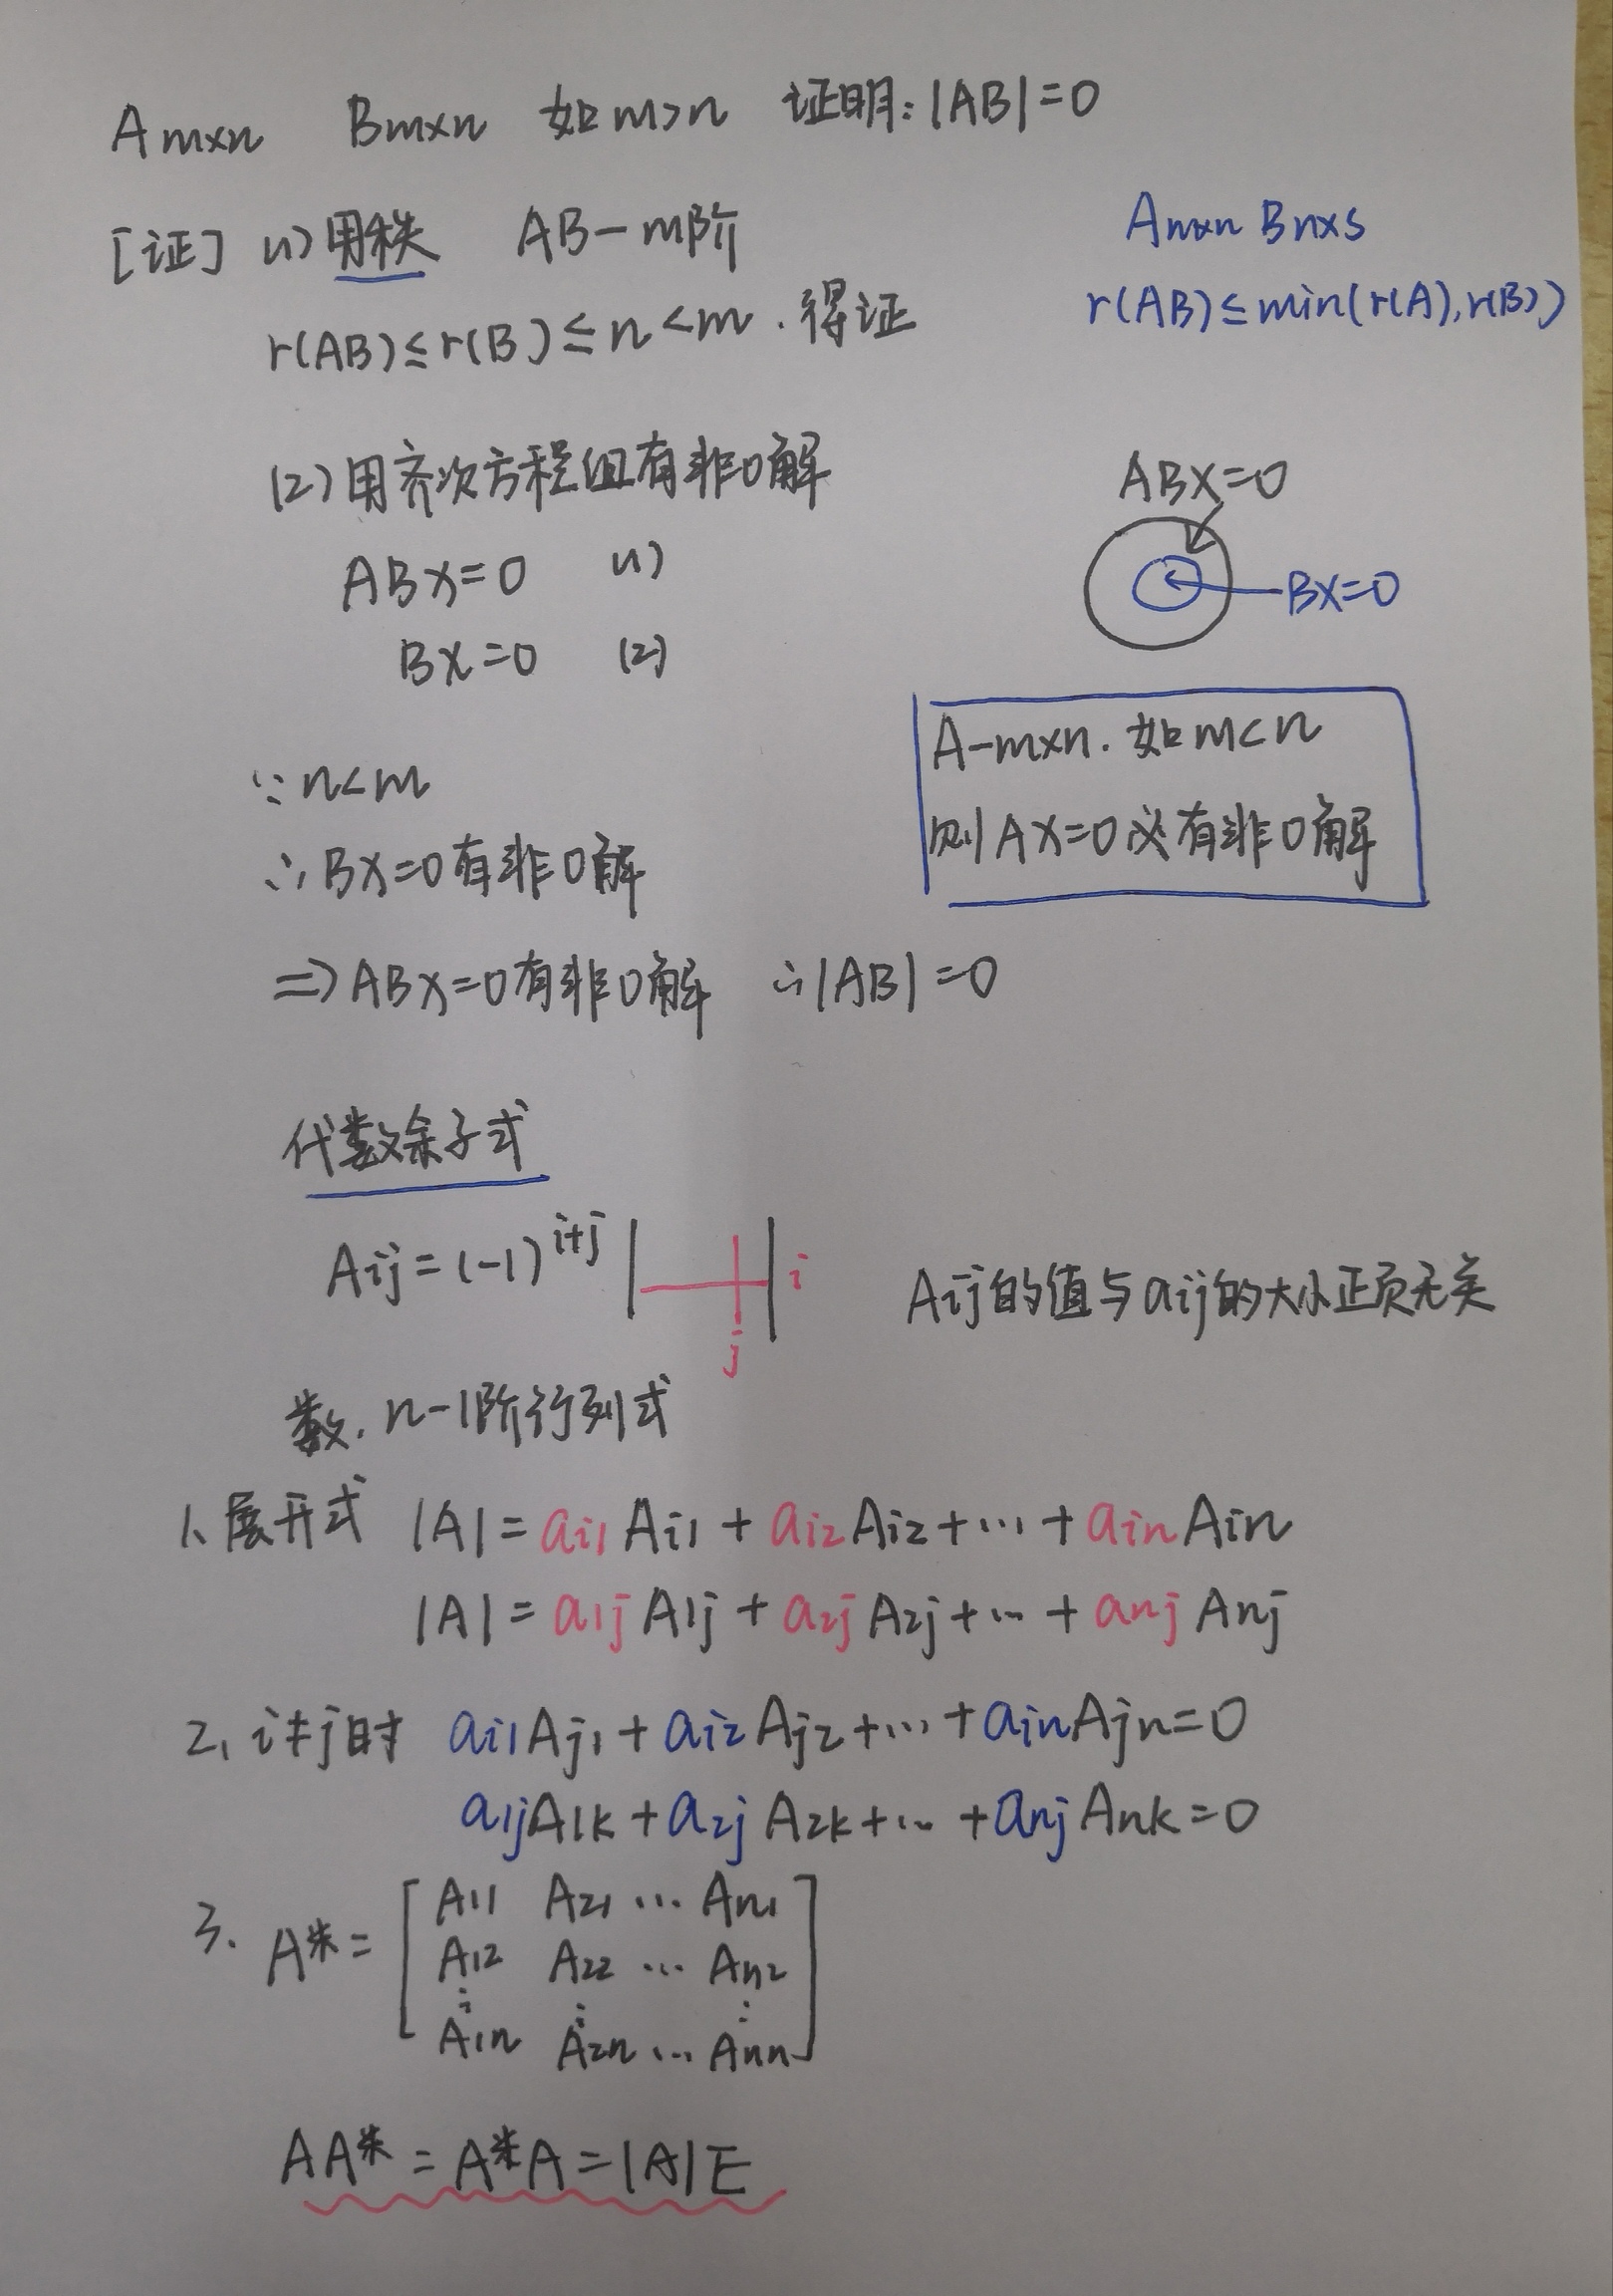 Amxn Bmxn 如m>n 证明:|AB|=0
[证] (1)用秩 AB-m阶
Amxn Bnxs
r(AB)≤r(B)≤n<m.得证
r(AB)≤min(r(A),r(B))
(2)用齐次方程组有非0解
ABX=0
ABx=0 (1)
BX=0
Bx=0 (2)
A-mxn.如m<n
∵n<m
则AX=0必有非0解
∴Bx=0有非0解
⇒ABx=0有非0解 ∴|AB|=0
代数余子式
Aij=(-1)^{i+j} | | i
j
Aij的值与aij的大小正负无关
数.n-1阶行列式
1、展开式 |A|=ai1Ai1+ai2Ai2+…+ainAin
|A|=a1jA1j+a2jA2j+…+anjAnj
2、i≠j时 ai1Aj1+ai2Aj2+…+ainAjn=0
a1jA1k+a2jA2k+…+anjAnk=0
3. A*=[A11 A21 … An1
A12 A22 … An2
⋮ ⋮ ⋮
A1n A2n … Ann]
AA*=A*A=|A|E